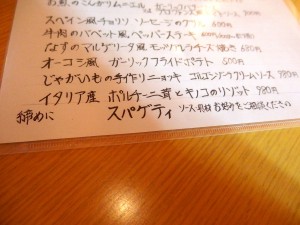 スペイン風チョリソーセージのグリル 600円
牛肉のバベット風ペッパーステーキ
なすのマルゲリータ風モッツァレラチーズ焼き 680円
オーコシ風 ガーリックフライドポテト 500円
じゃがいもの手作りニョッキ ゴルゴンゾーラクリームソース 780円
イタリア産 ポルチーニ茸とキノコのリゾット 980円
締めに スパゲティ ソース、具材お好みをご相談ください